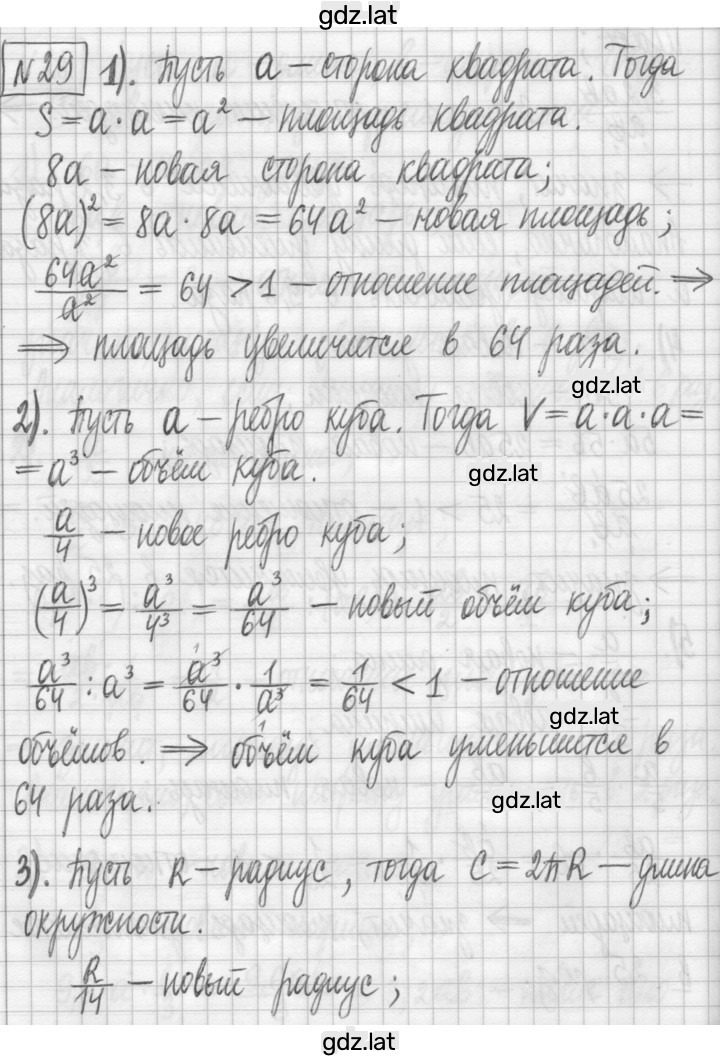 gdz.lat
№29 1). Пусть a — сторона квадрата. Тогда
S = a · a = a² — площадь квадрата.
8a — новая сторона квадрата;
(8a)² = 8a · 8a = 64a² — новая площадь;
64a²/a² = 64 > 1 — отношение площадей. ⇒
⇒ площадь увеличится в 64 раза.
gdz.lat
2). Пусть a — ребро куба. Тогда V = a · a · a =
= a³ — объём куба.
gdz.lat
a/4 — новое ребро куба;
(a/4)³ = a³/4³ = a³/64 — новый объём куба;
a³/64 : a³ = a³/64 · 1/a³ = 1/64 < 1 — отношение
gdz.lat
объёмов. ⇒ объём куба уменьшится в
64 раза.
gdz.lat
3). Пусть R — радиус, тогда C = 2πR — длина
окружности.
R/14 — новый радиус;
gdz.lat